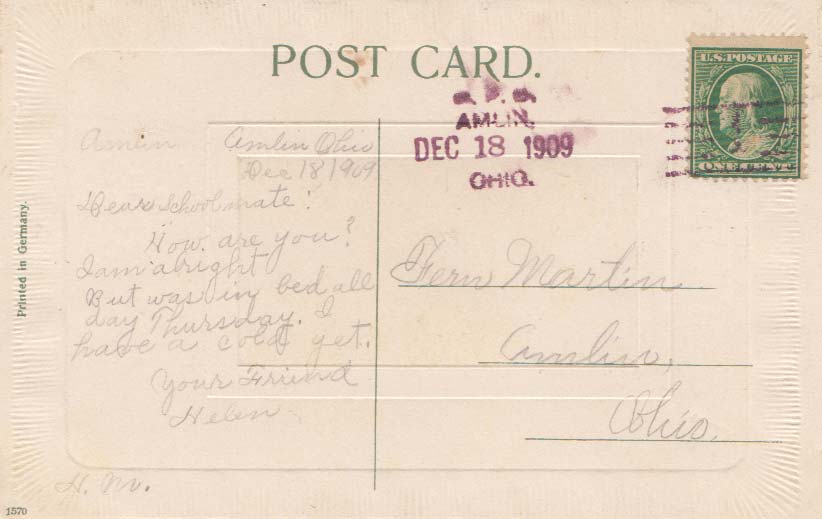 POST CARD.
U.S. POSTAGE
AMLIN,
DEC 18 1909
OHIO.
Amlin
Amlin Ohio
Dec 18 1909
Dear Schoolmate!
How are you?
I am alright
But was in bed all
day Thursday. I
have a cold yet.
Your Friend
Helen
Fern Martin
Amlin,
Ohio.
Printed in Germany.
1570